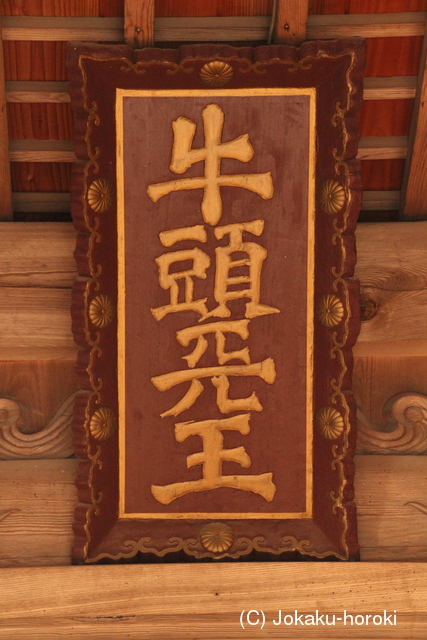 牛頭天王
(C) Jokaku-horoki